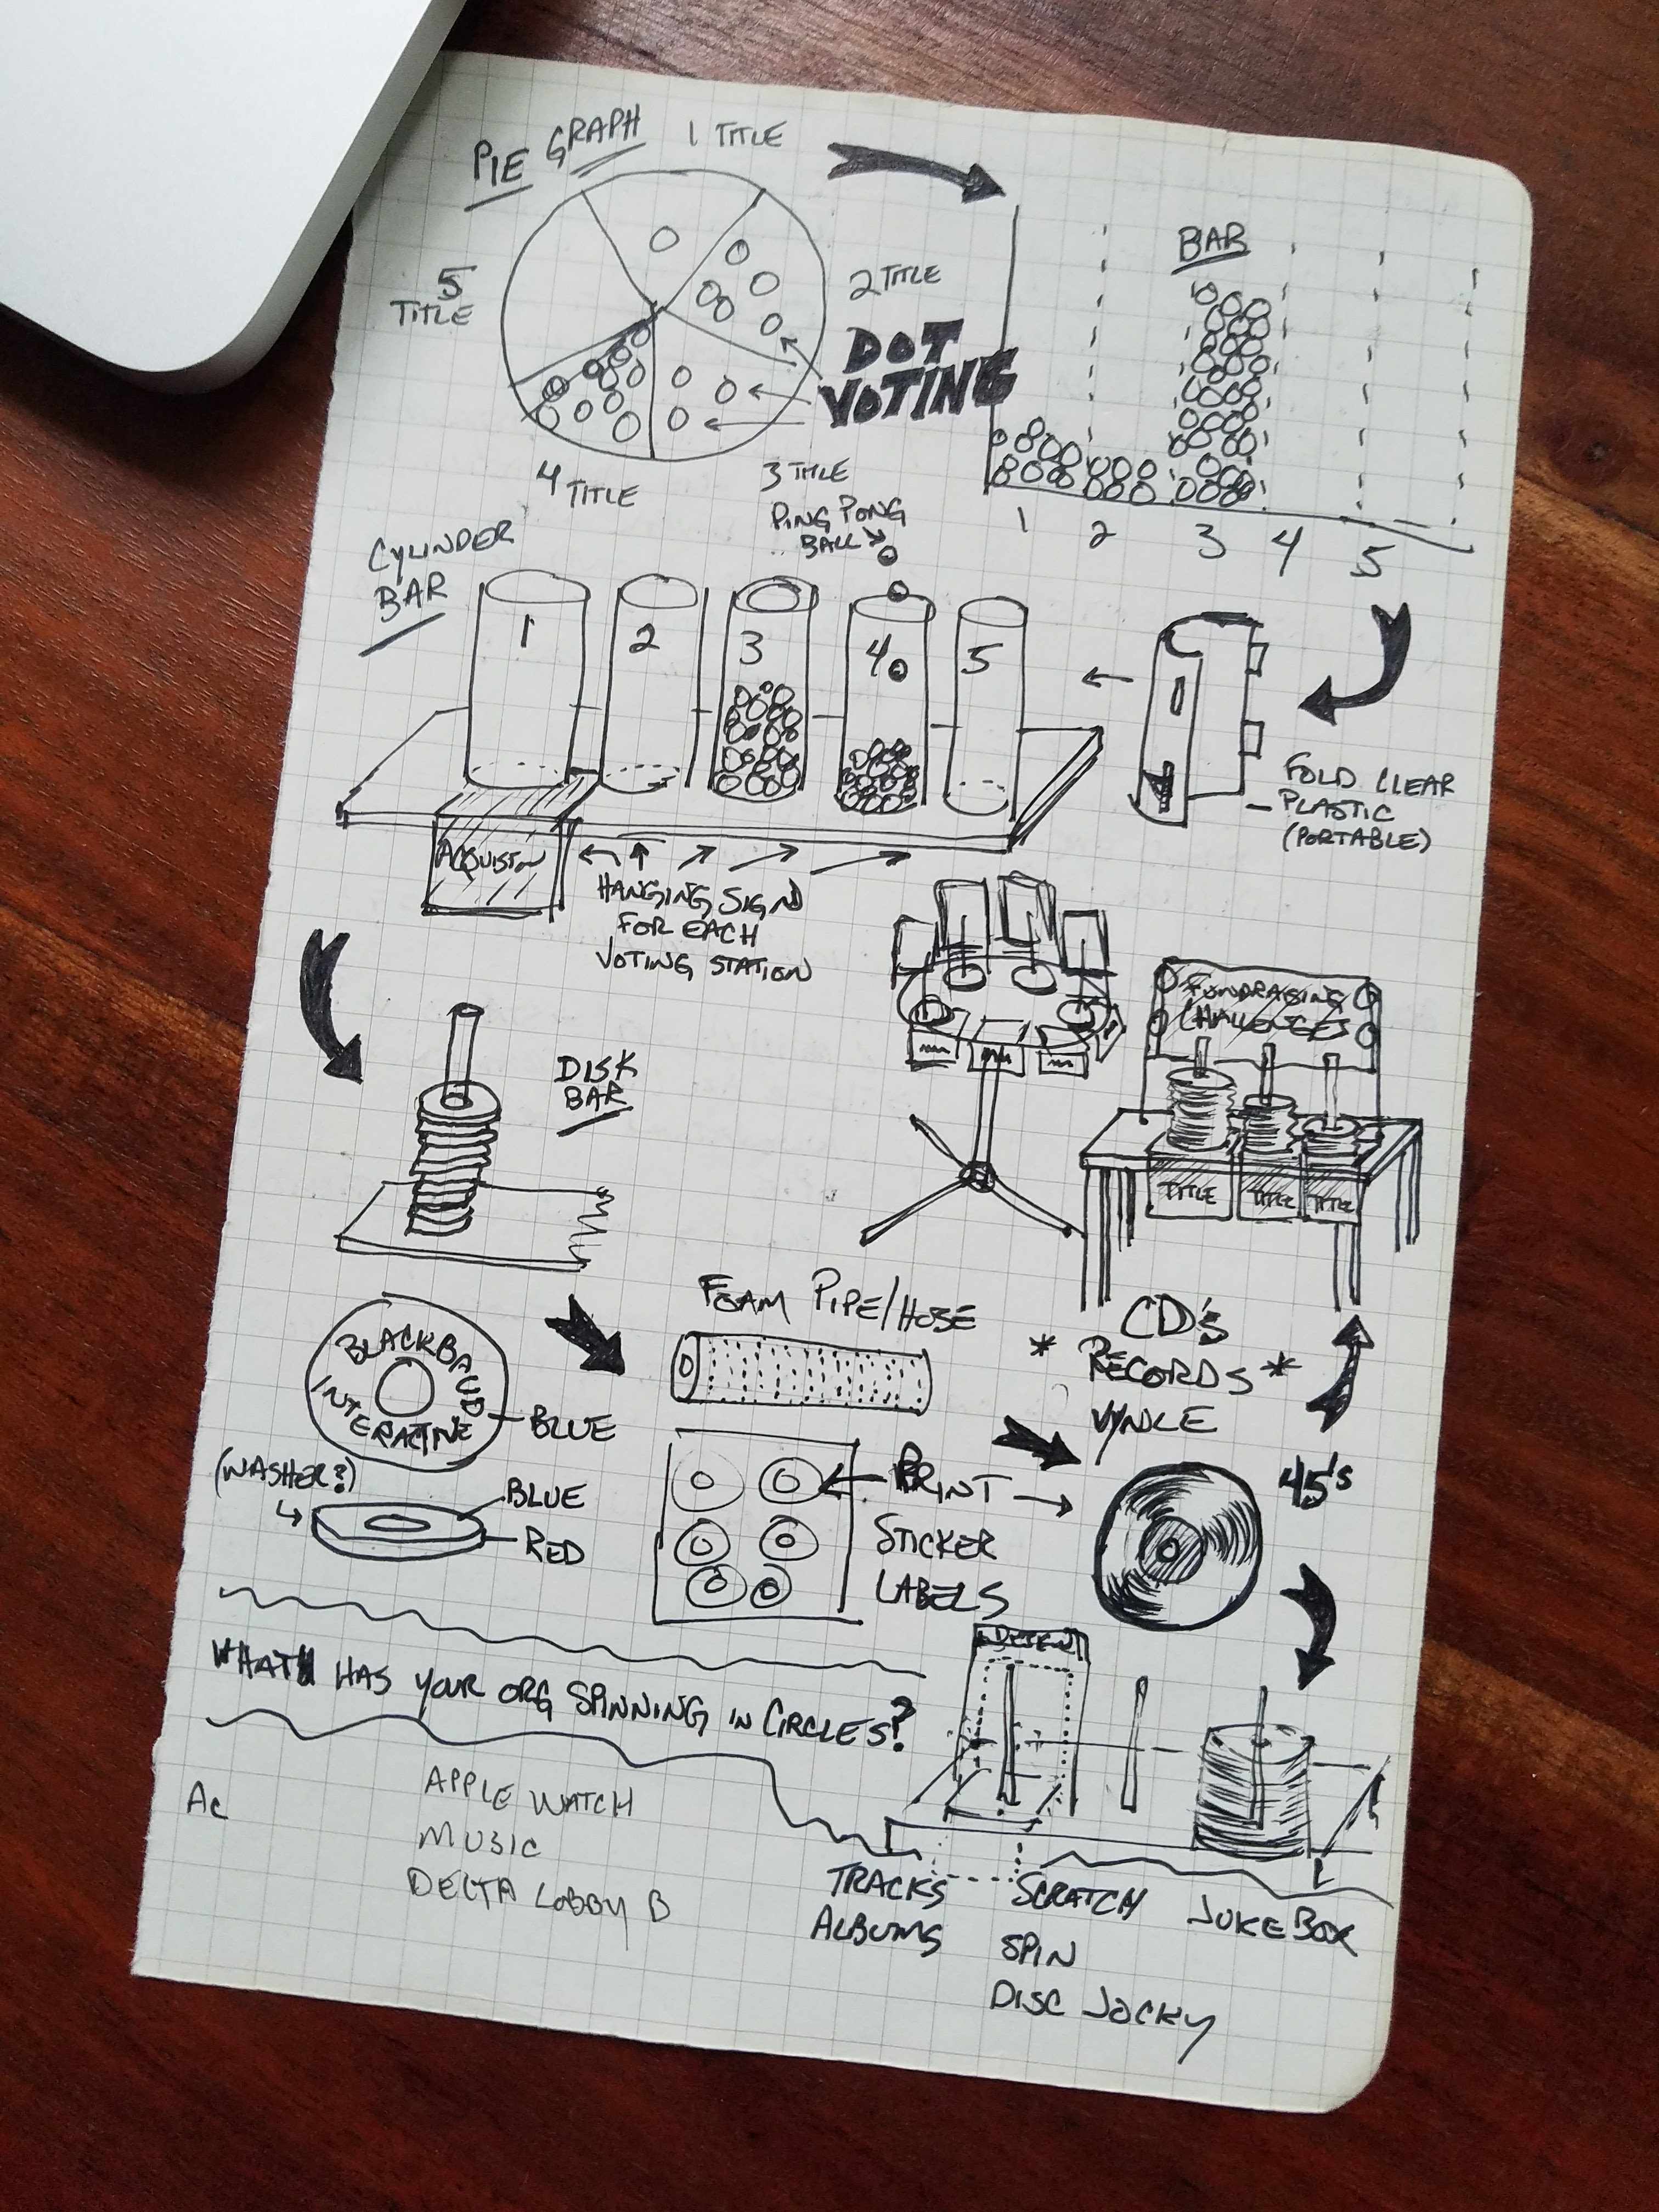 PIE GRAPH
1 TITLE
2 TITLE
5
TITLE
DOT
VOTING
4 TITLE
3 TITLE
BAR
1 2 3 4 5
PING PONG
BALL
CYLINDER
BAR
1 2 3 4 5
FOLD CLEAR
PLASTIC
(PORTABLE)
ACQUISTON
HANGING SIGN
FOR EACH
VOTING STATION
DISK
BAR
FUNDRAISING
CHALLENGES
TITLE TITLE TITLE
FOAM PIPE/HOSE
CD's
* RECORDS *
VYNLE
45's
BLACKBAUD
INTERACTIVE
BLUE
(WASHER?)
BLUE
RED
PRINT
STICKER
LABELS
WHAT HAS YOUR ORG SPINNING IN CIRCLES?
Ac
APPLE WATCH
MUSIC
DELTA LOBBY B
TRACKS
ALBUMS
SCRATCH
SPIN
DISC JOCKY
JUKEBOX